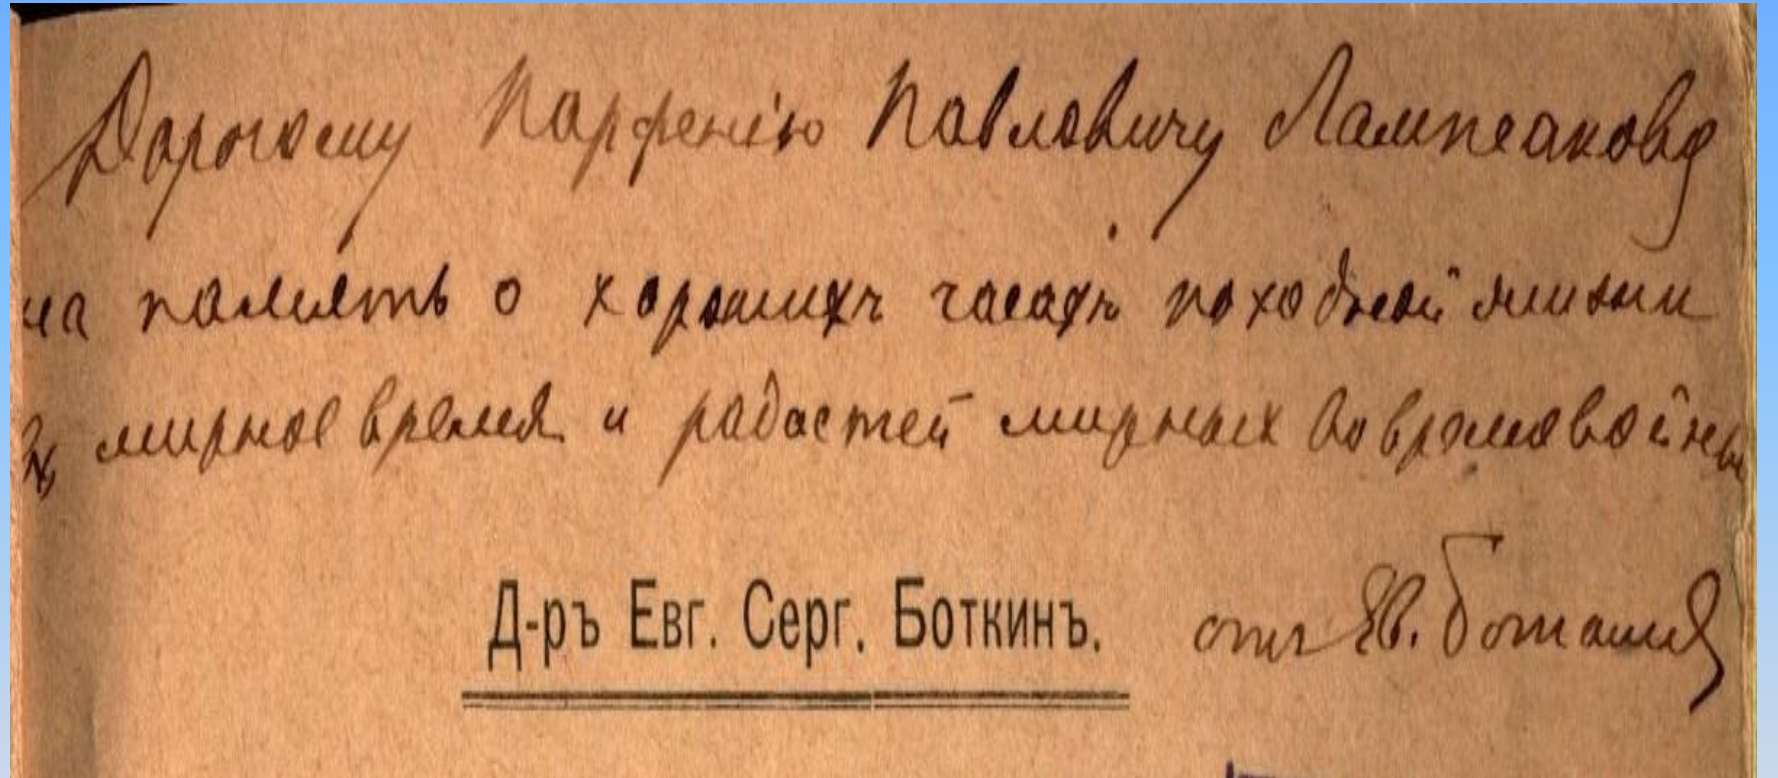 Дорогому Парфенію Павловичу
на память о хорошихъ часахъ походной жизни
въ мирное время и радостей мирныхъ во время войны
Д-ръ Евг. Серг. Боткинъ.
отъ Ев. Боткина